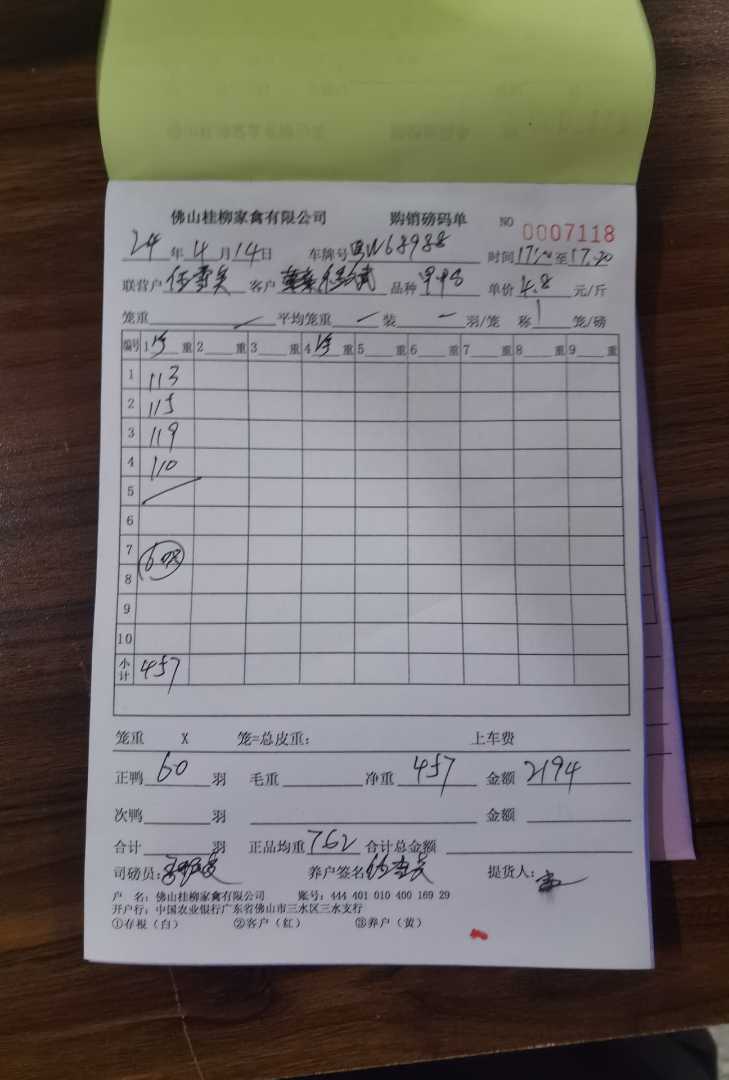 佛山桂柳家禽有限公司 购销磅码单 NO 0007118
24年4月14日 车牌号粤W68988 时间17: 至17:20
联营户 客户 品种 单价4.8元/斤
笼重 平均笼重 装 羽/笼 称1笼/磅
编号 1 重 2 重 3 重 4 重 5 重 6 重 7 重 8 重 9 重
1 113
2 115
3 119
4 110
5
6
7
8
9
10
小计 457
笼重 X 笼=总皮重: 上车费
正鸭60羽 毛重 净重457 金额2194
次鸭 羽 金额
合计 羽 正品均重7.62 合计总金额
司磅员: 养户签名 提货人:
户 名: 佛山桂柳家禽有限公司 账号: 444 401 010 400 169 29
开户行: 中国农业银行广东省佛山市三水区三水支行
①存根(白) ②客户(红) ③养户(黄)